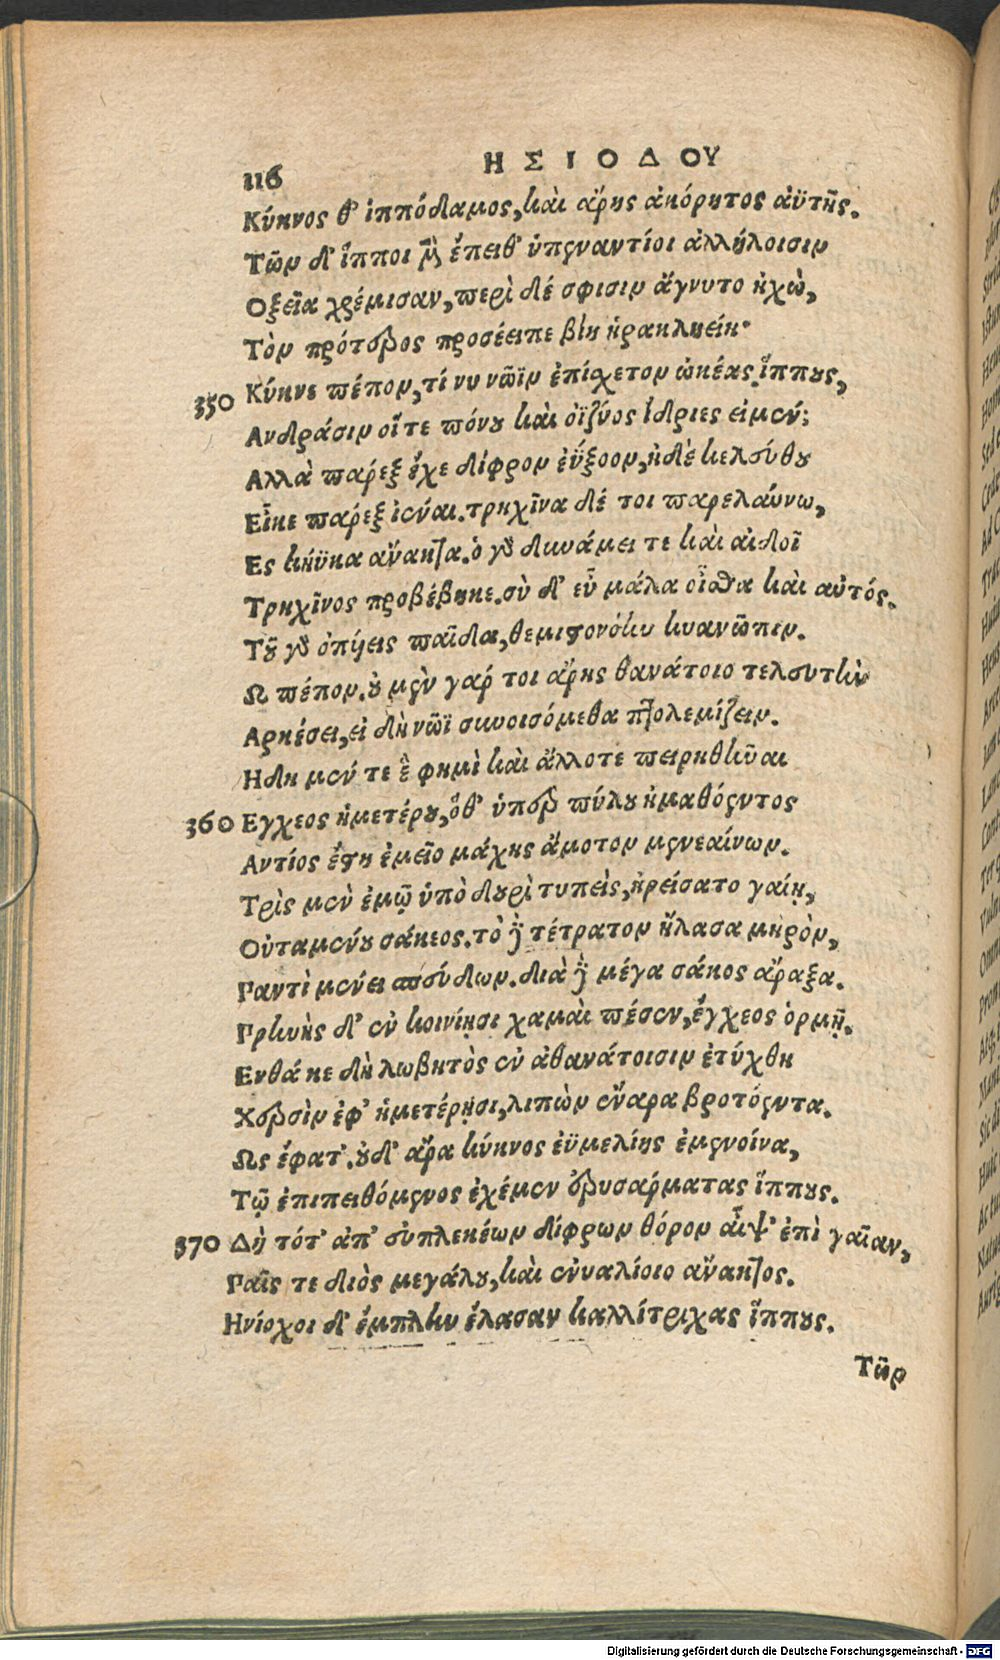 116
ΗΣΙΟΔΟΥ
Κύκνος θ' ἱππόδαμος, καὶ ἄρης ἀκόρητος ἀϋτῆς.
Τῶν δ' ἵπποι μὲν ἔπειθ' ὑπεναντίοι ἀλλήλοισιν
Οξεῖα χρέμισαν, περὶ δέ σφισιν ἄγνυτο ἠχὼ,
Τὸν πρότερος προσέειπε βίη ἡρακληείη·
350 Κύκνε πέπον, τί νυ νῶϊν ἐπίσχετον ὠκέας ἵππους,
Ανδράσιν οἵ τε πόνου καὶ ὀϊζύος ἴδριες εἰμέν;
Αλλὰ παρέξ ἔχε δίφρον ἐΰξοον, ἠδὲ κελεύθου
Εἶκε παρέξ ἰέναι. τρηχῖνα δέ τοι παρελαύνω,
Ες κήϋκα ἄνακτα. ὁ γὰρ δυνάμει τε καὶ αἰδοῖ
Τρηχῖνος προβέβηκε. σὺ δ' εὖ μάλα οἶσθα καὶ αὐτός.
Τοῦ γὰρ ὀπυίεις παῖδα, θεμιστονόην κυανῶπιν.
Ω πέπον. οὐ μὲν γάρ τοι ἄρης θανάτοιο τελευτὴν
Αρκέσει, εἰ δὴ νῶϊ συνοισόμεθα πτολεμίζειν.
Ηδη μέν τε ἓ φημὶ καὶ ἄλλοτε πειρηθῆναι
360 Εγχεος ἡμετέρου, ὅθ' ὑπὲρ πύλου ἠμαθόεντος
Αντίος ἔστη ἐμεῖο μάχης ἄμοτον μενεαίνων.
Τρὶς μὲν ἐμῷ ὑπὸ δουρὶ τυπεὶς, ἠρείσατο γαίῃ,
Οὐταμένου σάκεος. τὸ δὲ τέτρατον ἤλασα μηρὸν,
Παντὶ μένει σπεύδων. διὰ δὲ μέγα σάκος ἄραξα.
Πρηνὴς δ' ἐν κονίῃσι χαμαὶ πέσεν, ἔγχεος ὁρμῇ.
Ενθά κε δὴ λωβητὸς ἐν ἀθανάτοισιν ἐτύχθη
Χερσὶν ἐφ' ἡμετέρῃσι, λιπὼν ἔναρα βροτόεντα.
Ως ἔφατ'. οὐδ' ἄρα κύκνος ἐϋμελίης ἐμενοίνα,
Τῷ ἐπιπειθόμενος ἐχέμεν ἐρυσάρματας ἵππους.
370 Δὴ τότ' ἀπ' εὐπλεκέων δίφρων θόρον αἶψ' ἐπὶ γαῖαν,
Παῖς τε διὸς μεγάλου, καὶ ἐνυαλίοιο ἄνακτος.
Ηνίοχοι δ' ἔμπλην ἔλασαν καλλίτριχας ἵππους.
Τῶν
Digitalisierung gefördert durch die Deutsche Forschungsgemeinschaft - DFG